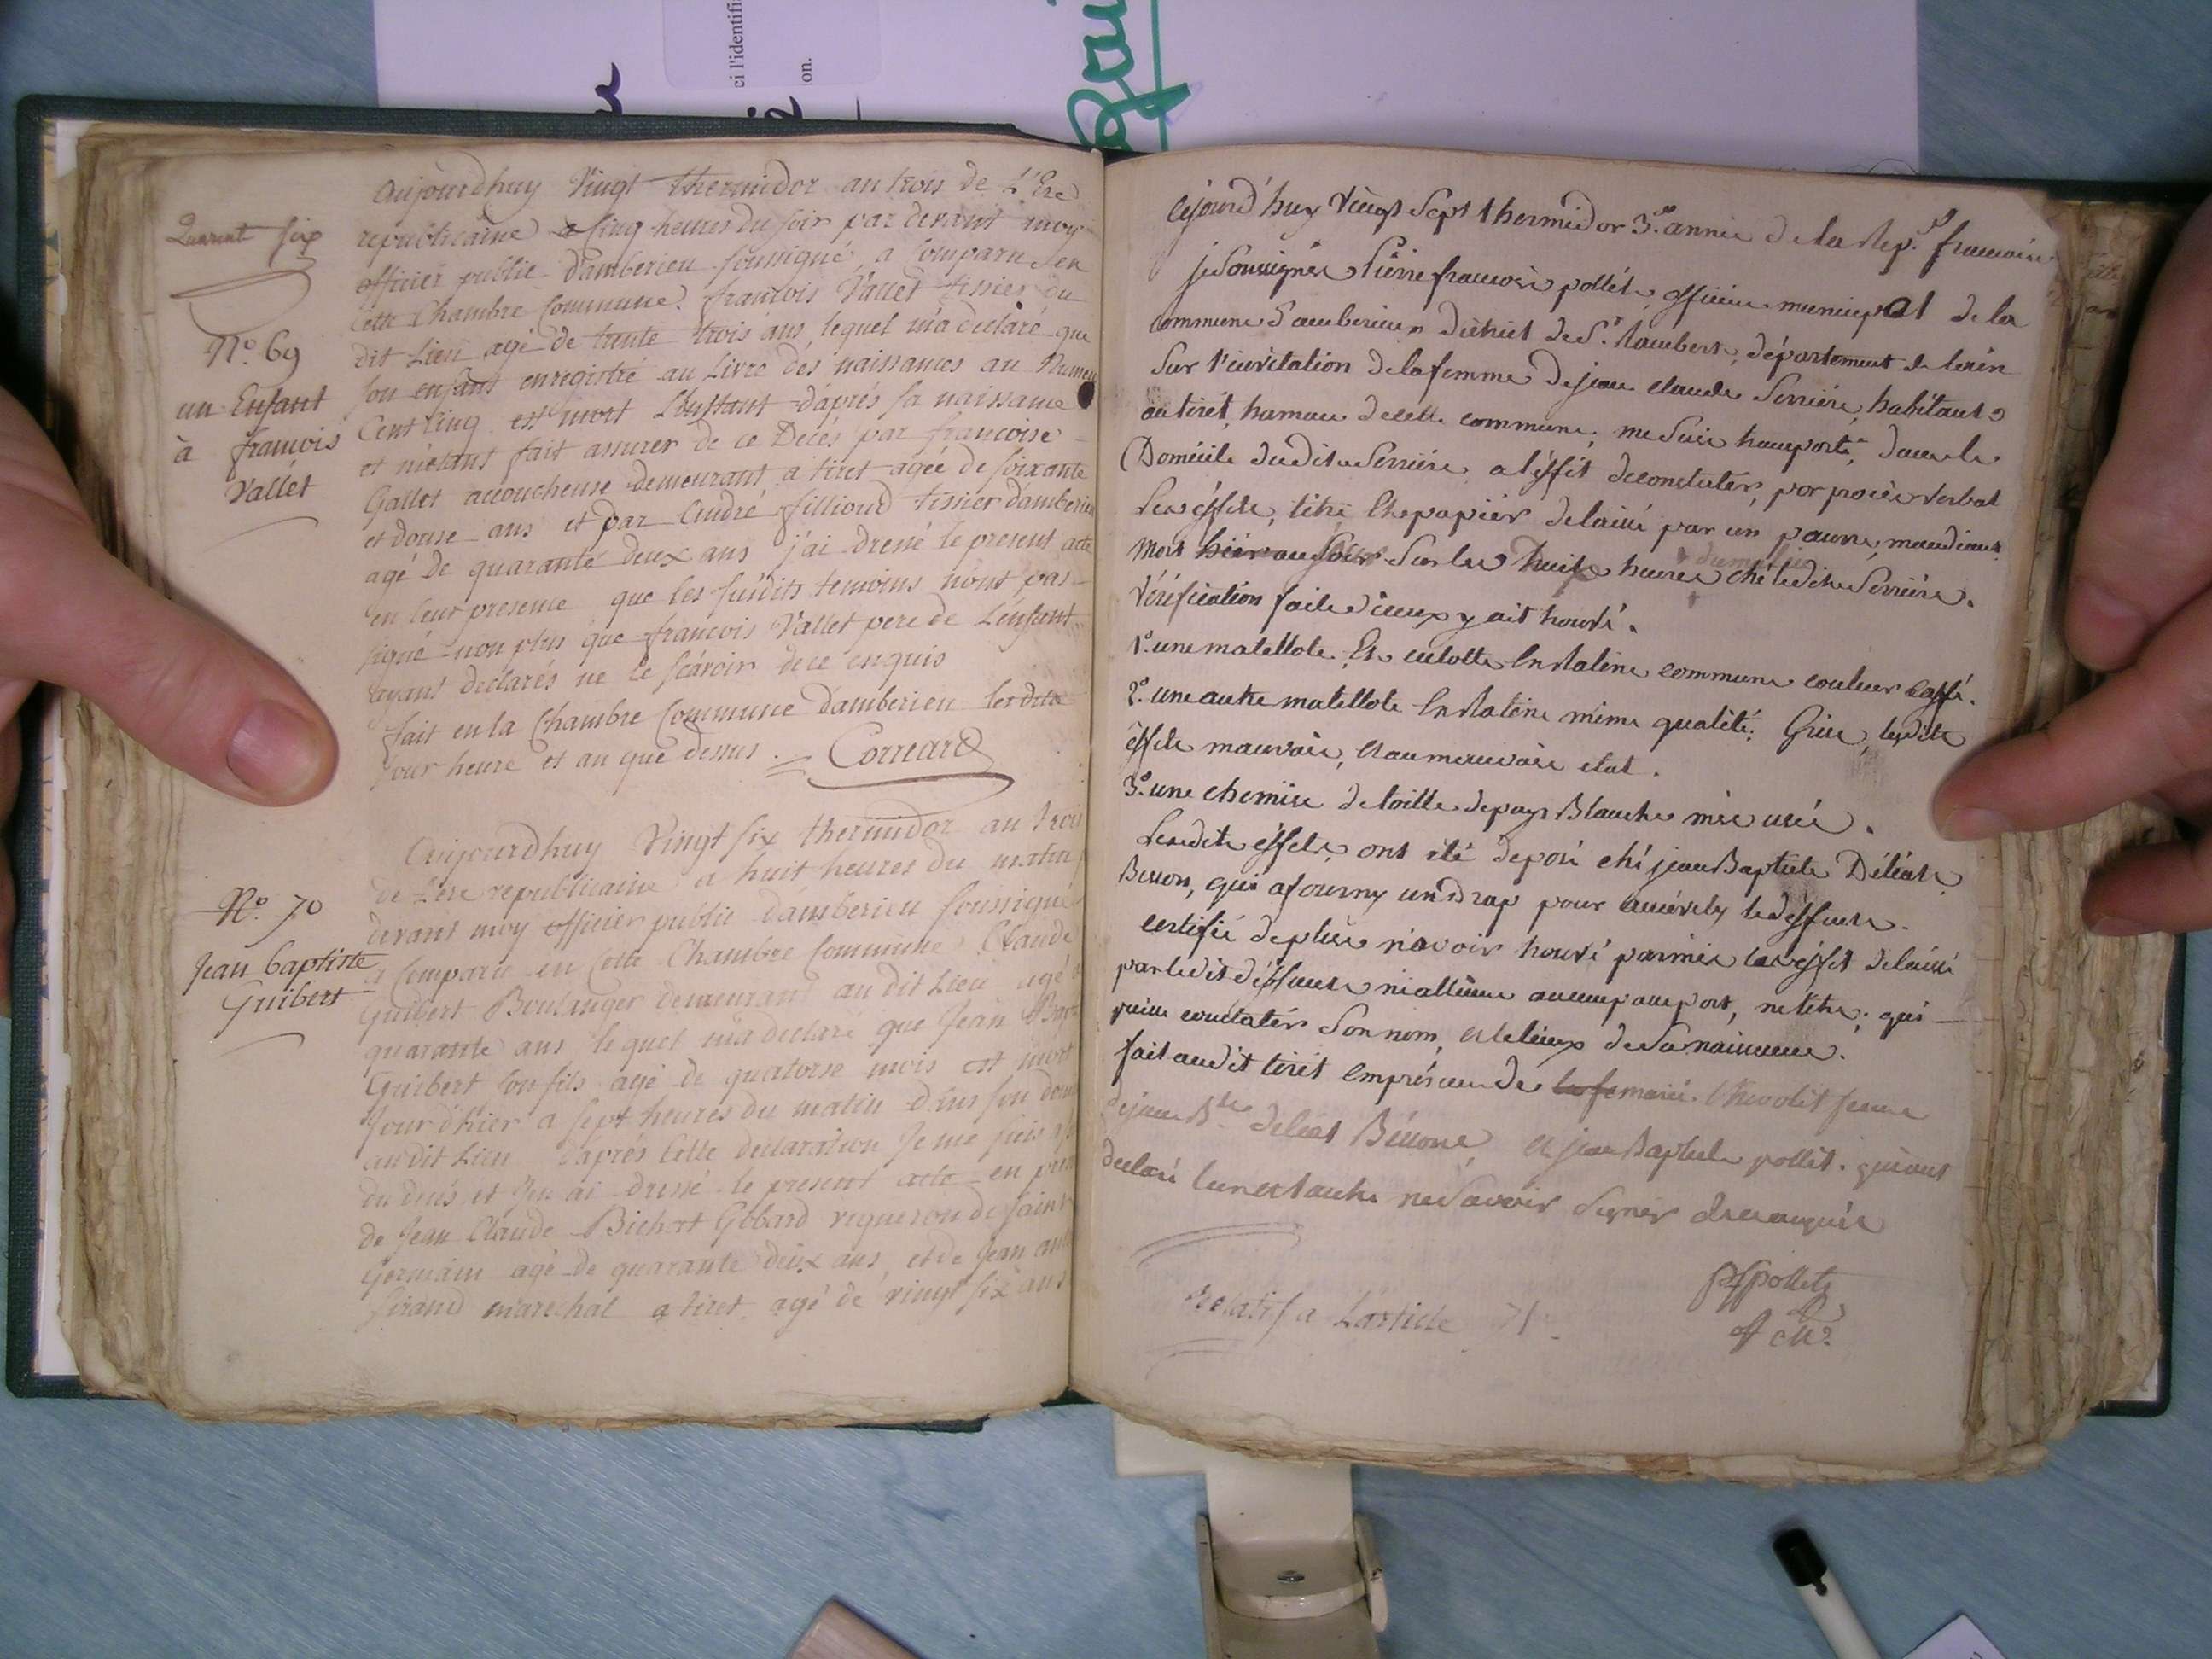 ci l'identifi
on.
Quarant six
aujourdhuy Vingt thermidor an trois de L'Ere
republicaine a cinq heures du soir par devant moy
officier public damberieu soussigné, a comparu en
cette Chambre Commune. francois Vallet tissier du
dit Lieu agé de trente trois ans, lequel m'a declaré que
son enfant enregistré au Livre des naissances au Numero
Cent cinq est mort L'instant d'aprés sa naissance
et m'etant fait assurer de ce Decés par francoise
Gallet accoucheuse demeurant a tiret agée de soixante
et douse ans et par andré fillioud tissier damberieu
agé de quarante deux ans j'ai dressé le present acte
en leur presence que les susdits temoins n'ont pas
signé non plus que francois Vallet pere de L'enfant
ayant déclarés ne le scavoir de ce enquis
fait en la Chambre Commune damberieu lesdits
jour heure et an que dessus. Correard
No. 69
un Enfant
à francois
Vallét
Aujourdhuy Vingt six thermidor an trois
de L'ere republicaine a huit heures du matin
devant moy officier public damberieu soussigné
a Comparu en cette Chambre Commune Claude
Guibert Boulanger demeurant au dit Lieu agé
quarante ans lequel m'a declaré que Jean Bapt
Guibert son fils agé de quatorse mois est mort
Jour d'hier a sept heures du matin dans son dom
au dit Lieu d'aprés Cette declaration Je me suis
du decés et J'en ai dressé le present acte en pre
de Jean Claude Bichat Gobard vigneron de saint
Germain agé de quarante deux ans, et de Jean
Sirand marechal a tiret agé de vingt six ans
No. 70
Jean baptiste
Guibert
aujourd'huy vingt sept thermidor 3e. année de la Rep. francaise
je soussignée Pierre francois pollét officier municipal de la
commune d'amberieux district de St. Rambert, département de l'ain
Sur l'invitation de la femme de jean claude Serriére, habitant
au tirét, hamau de cette commune, me suis transporté, dans le
Domicile dudit Serriére a l'éffét de constater, par procès verbal
Les éffets, titre et papier délaissé par un pauvre, mandiant
Mort hiér au soir Sur les huit heures ché ledit Serriére.
Vérification faite d'iceux y ait trouvé.
1o. une matellote, Et culotte En Ratine commune couleur caffé.
2o. une autre matellote En Ratine même qualité: Grise, lesdits
éffets mauvais, et au mauvais etat.
3o. une chemise de toille de pays Blanche mie usée.
Lesdits éffets ont été déposé ché jean Baptiste Déléat
Besson, qui a fourny un drap pour ensévely le deffunt.
certifié de plus n'avoir trouvé parmis les éffet delaissé
par ledit déffunt ni allieur aucun passeport, ne titre; qui
puisse constatér Son nom, et le lieux de Sa naissance.
fait audit tirét En présence de
de jean Bte. deléat Béssone, et jean Baptiste pollét. qui ont
declaré l'un et l'autre ne Savoir Signér de ce enquis
pf pollet
Relatif a L'article 71.